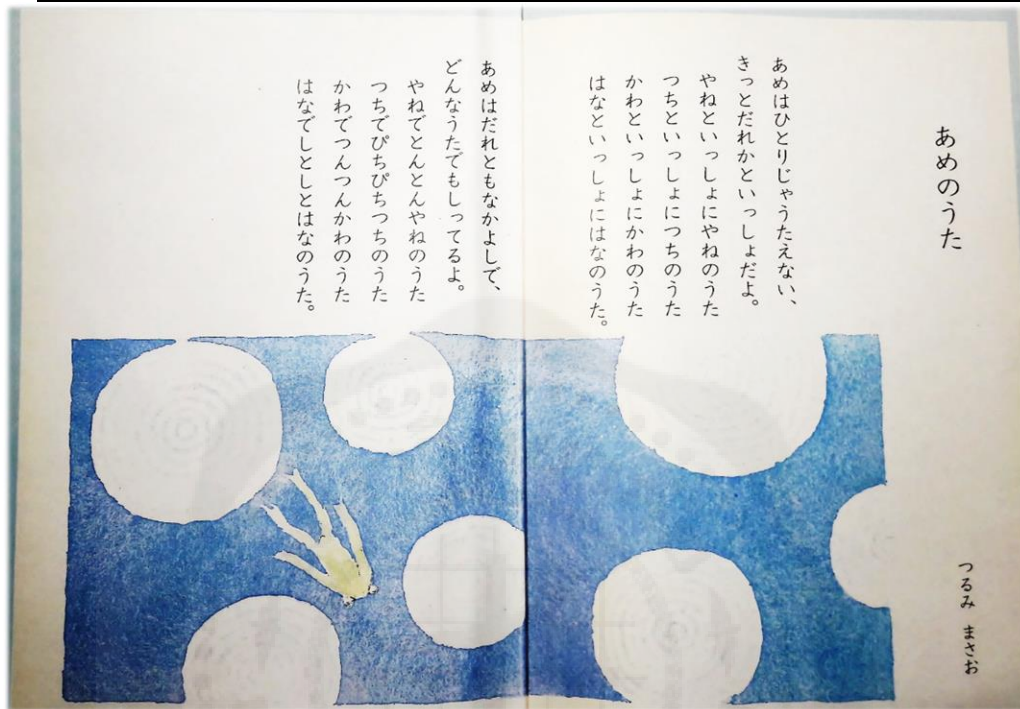 あめのうた
つるみ まさお
あめはひとりじゃうたえない、
きっとだれかといっしょだよ。
やねといっしょにやねのうた
つちといっしょにつちのうた
かわといっしょにかわのうた
はなといっしょにはなのうた。
あめはだれともなかよしで、
どんなうたでもしってるよ。
やねでとんとんやねのうた
つちでぴちぴちつちのうた
かわでつんつんかわのうた
はなでしとしとはなのうた。